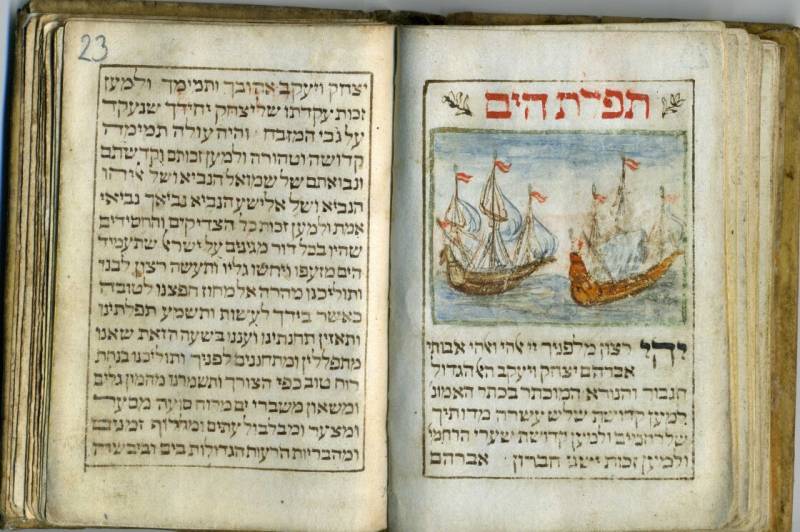 תפלת הים
יהי רצון מלפניך יי אהי ואהי אבותי
אברהם יצחק ויעקב הא הגדול
הגבור והנורא המוכתר בכתר האמונ
למען קדושת שלש עשרה מדותיך
של רחמים ולמען קדושת שערי הרחמי
ולמען זכות ישני חברון אברהם
23
יצחק ויעקב אהוביך ותמימך ולמען
זכות עקדתו של יצחק יחידך שנעקד
על גבי המזבח והיה עולה תמימה
קדושה וטהורה ולמען זכותם וקדשתם
ונבואתם של שמואל הנביא ושל אליהו
הנביא ושל אלישע הנביא נביאך נביאי
אמת ולמען זכות כל הצדיקים והחסידים
שהיו בכל דור מגינים על ישראל שתעמיד
הים מזעפו ויחשו גליו ותעשה רצון לבנו
ותוליכנו מהרה אל מחוז חפצנו לטובה
כאשר בידך לעשות ותשמע תפלתינו
ותאזין תחנתינו ועננו בשעה הזאת שאנו
מתפללין ומתחננים לפניך ותוליכנו בנחת
רוח טוב כפי הצורך ותשמרנו מהמון גלים
ומשאון משברי ים מרוח סועה מסער
ומצער ומבלבול עתים ומדרוף זמנים
ומהבריות הרעות הגדולות בים וביבשה